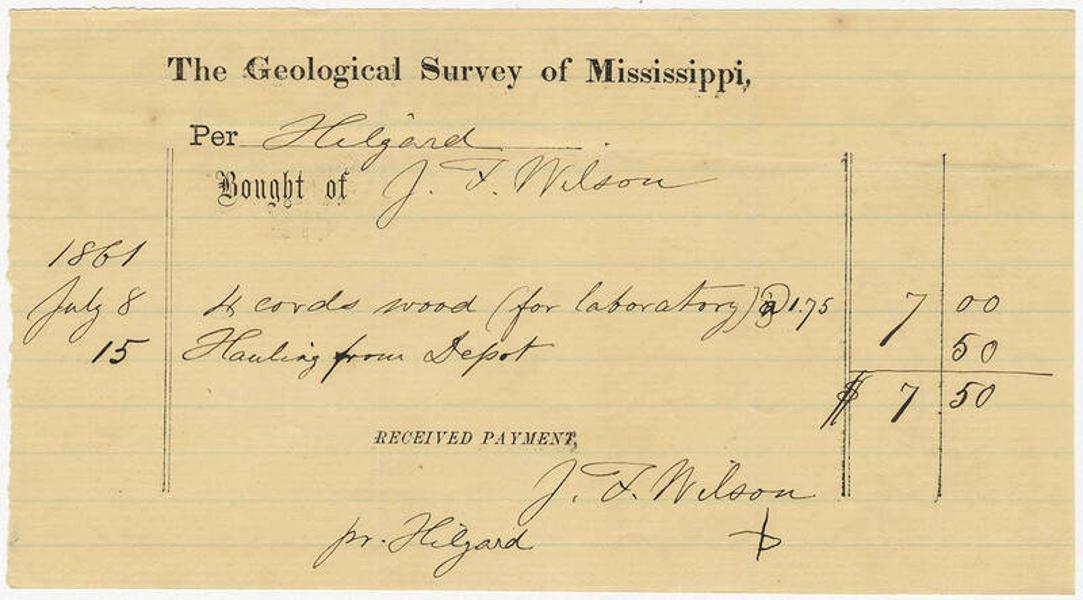 The Geological Survey of Mississippi,
Per Hilgard
Bought of J. F. Wilson
1861
July 8 4 cords wood (for laboratory) @ 1.75 7 00
15 Hauling from Depot 50
$ 7 50
RECEIVED PAYMENT,
J. F. Wilson
pr. Hilgard